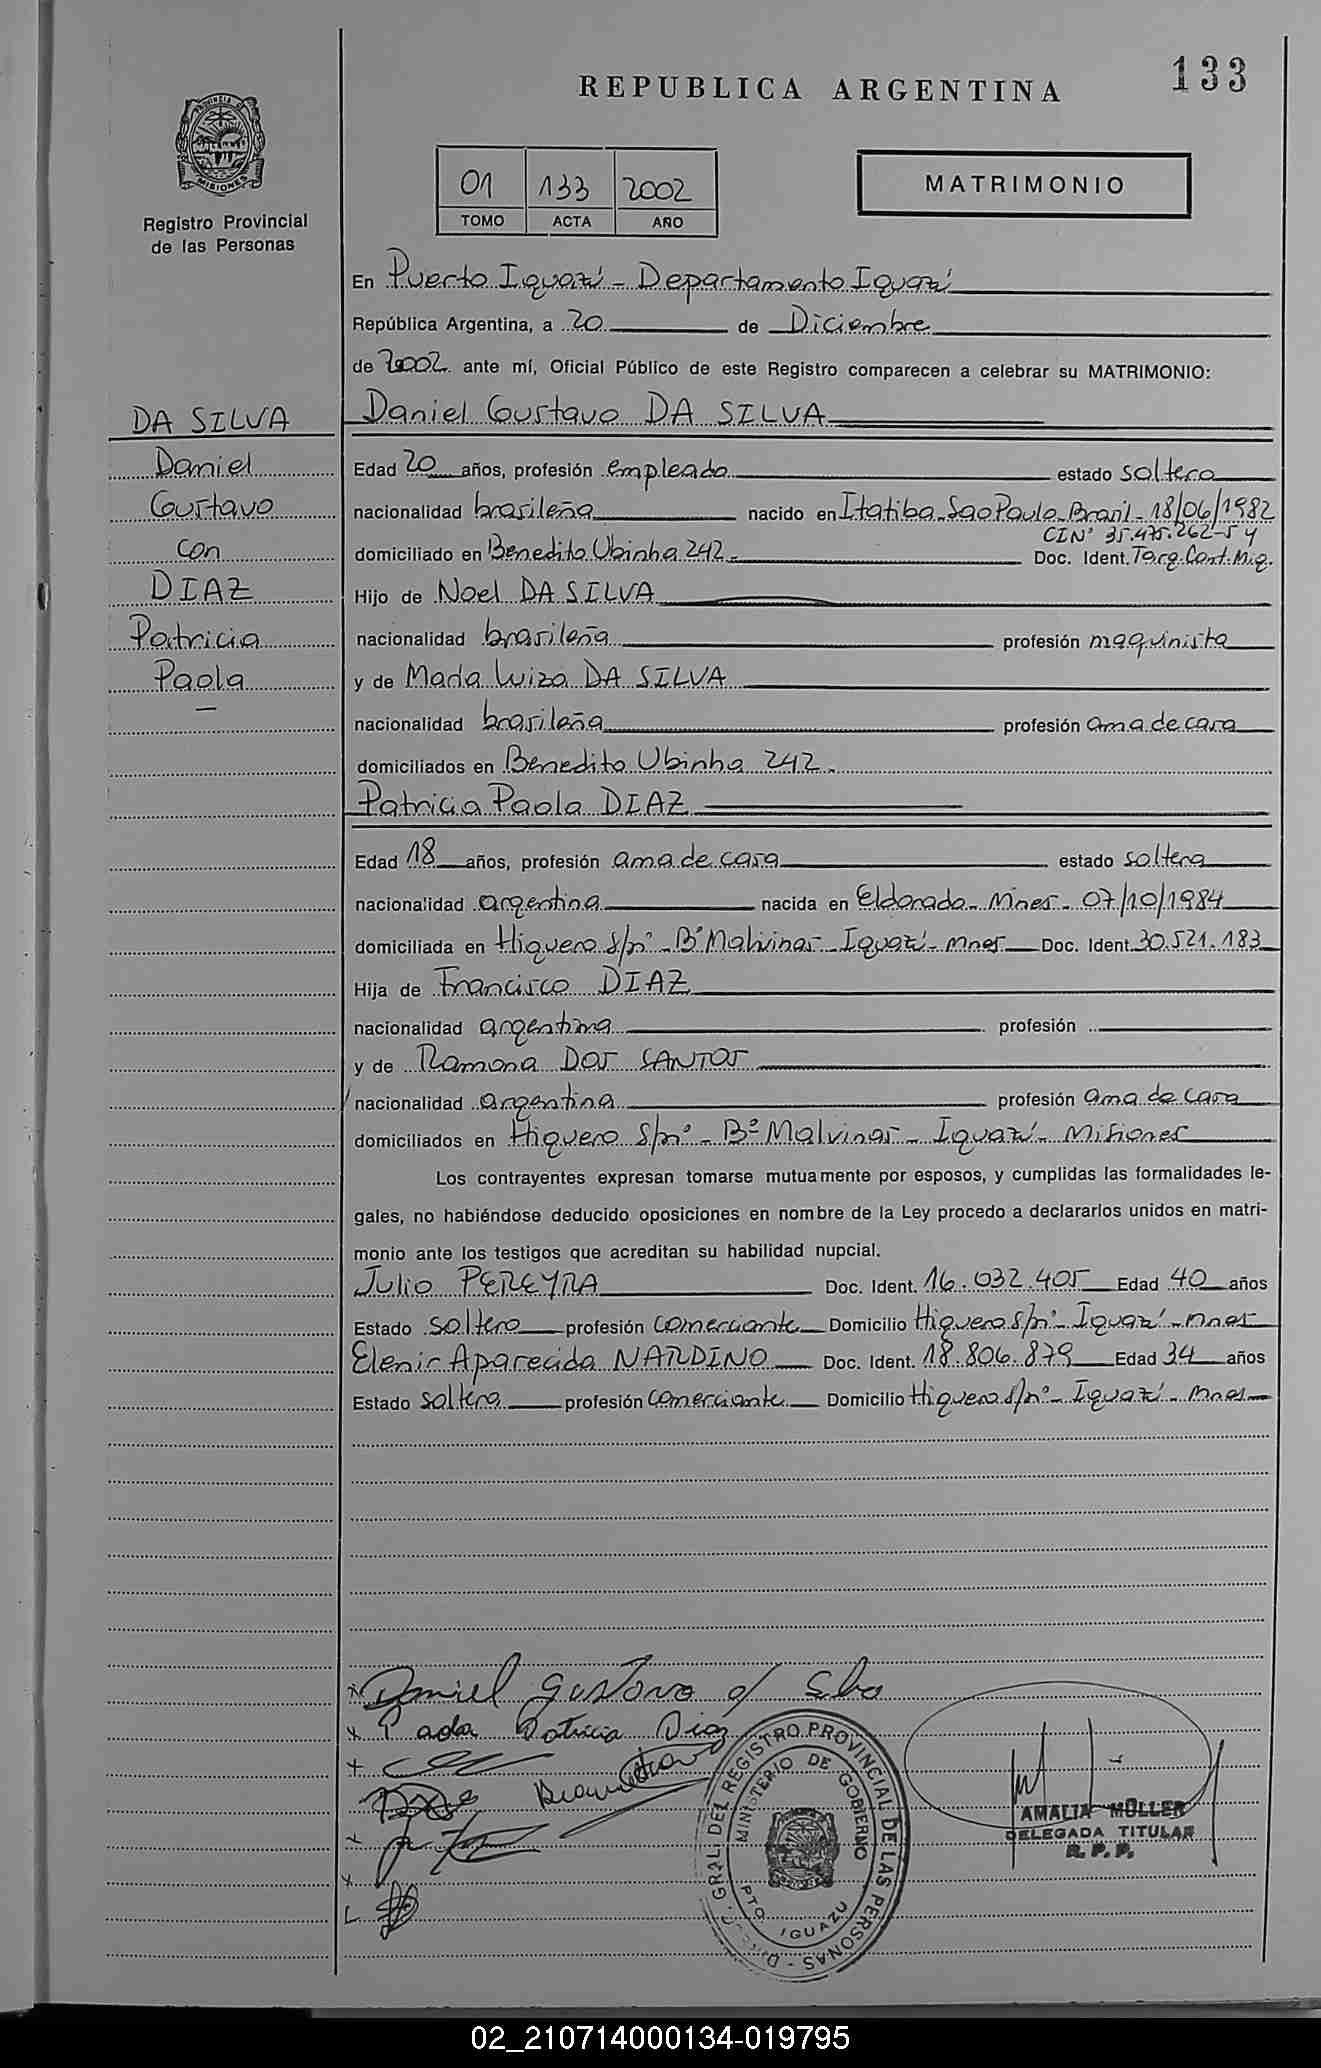 133
REPUBLICA ARGENTINA
01 133 2002
TOMO ACTA AÑO
MATRIMONIO
PROVINCIA DE MISIONES
Registro Provincial
de las Personas
En Puerto Iguazú - Departamento Iguazú
República Argentina, a 20 de Diciembre
de 2002 ante mí, Oficial Público de este Registro comparecen a celebrar su MATRIMONIO:
DA SILVA
Daniel
Gustavo
con
DIAZ
Patricia
Paola
Daniel Gustavo DA SILVA
Edad 20 años, profesión empleado estado soltero
nacionalidad brasileña nacido en Itatiba - Sao Paulo - Brasil - 18/06/1982
CI Nº 35.475.262-5 y
domiciliado en Benedito Ubinha 242 - Doc. Ident. Targ. Cont. Mig.
Hijo de Noel DA SILVA
nacionalidad brasileña profesión maquinista
y de Maria Luiza DA SILVA
nacionalidad brasileña profesión ama de casa
domiciliados en Benedito Ubinha 242 -
Patricia Paola DIAZ
Edad 18 años, profesión ama de casa estado soltera
nacionalidad argentina nacida en Eldorado - Mnes - 07/10/1984
domiciliada en Higuero s/nº - Bº Malvinas - Iguazú - Mnes Doc. Ident. 30.521.183
Hija de Francisco DIAZ
nacionalidad argentina profesión
y de Ramona DOS SANTOS
nacionalidad argentina profesión ama de casa
domiciliados en Higuero s/nº - Bº Malvinas - Iguazú - Misiones
Los contrayentes expresan tomarse mutuamente por esposos, y cumplidas las formalidades le-
gales, no habiéndose deducido oposiciones en nombre de la Ley procedo a declararlos unidos en matri-
monio ante los testigos que acreditan su habilidad nupcial.
Julio PEREYRA Doc. Ident. 16.032.405 Edad 40 años
Estado soltero profesión comerciante Domicilio Higuero s/nº - Iguazú - Mnes
Elenir Aparecida NARDINO Doc. Ident. 18.806.879 Edad 34 años
Estado soltera profesión comerciante Domicilio Higuero s/nº - Iguazú - Mnes
Daniel Gustavo d/ Silva
Paola Patricia Diaz
GRAL. DEL REGISTRO PROVINCIAL DE LAS PERSONAS
MINISTERIO DE GOBIERNO
PTO. IGUAZU
AMALIA MÜLLER
DELEGADA TITULAR
R. P. P.
02_210714000134-019795